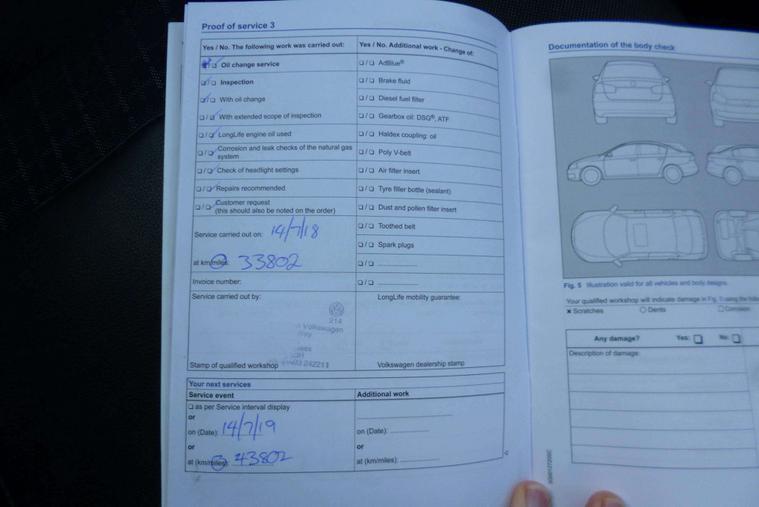 Proof of service 3
Yes / No. The following work was carried out:
Oil change service
Inspection
With oil change
With extended scope of inspection
LongLife engine oil used
Corrosion and leak checks of the natural gas
system
Check of headlight settings
Repairs recommended
Customer request
(this should also be noted on the order)
Service carried out on: 14/7/18
at km/miles: 33802
Invoice number:
Service carried out by:
214
Volkswagen
Stamp of qualified workshop
Yes / No. Additional work - Change of:
AdBlue®
Brake fluid
Diesel fuel filter
Gearbox oil: DSG®, ATF
Haldex coupling: oil
Poly V-belt
Air filter insert
Tyre filler bottle (sealant)
Dust and pollen filter insert
Toothed belt
Spark plugs
LongLife mobility guarantee:
Volkswagen dealership stamp
Your next services
Service event
as per Service interval display
or
on (Date): 14/7/19
or
at (km/miles): 43802
Additional work
on (Date):
or
at (km/miles):
Documentation of the body check
Fig. 5 Illustration valid for all vehicles and body designs.
Your qualified workshop will indicate damage in Fig. 5 using the
Scratches Dents Corrosion
Any damage? Yes: No:
Description of damage: